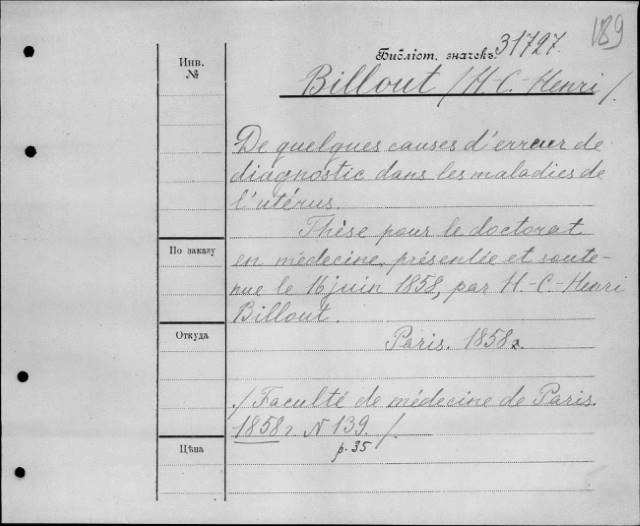 189
Библіот. значекъ 31727.
Инв.
№
Billout /H.-C.-Henri/.
De quelques causes d'erreur de
diagnostic dans les maladies de
l'utérus.
Thèse pour le doctorat
По заказу
en médecine, présentée et soute-
nue le 16 juin 1858, par H.-C.-Henri
Billout.
Откуда
Paris. 1858г.
/Faculté de médecine de Paris.
1858г. N 139./.
Цѣна
p. 35